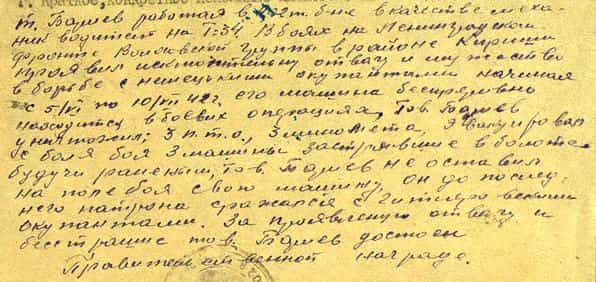 1. Краткое, конкретное
т. Батиев работая в 2 т. б-не в качестве меха-
ник водителя на Т-34. В боях на Ленинградском
фронте Волховской группы в районе Кириши
проявил исключительную отвагу и мужество
в борьбе с немецкими оккупантами начиная
с 5/VI по 10/VII 42г. его машина беспрерывно
находится в боевых операциях, Тов. Батиев
уничтожил: 3 п.т.о., 3 миномета, Эвакуировал
с поля боя 3 машины застрявшие в болоте
будучи раненым, тов. Батиев не оставил
на поле боя свою машину, он до послед-
него патрона сражался с гитлеровскими
оккупантами. За проявленную отвагу и
бесстрашие тов. Батиев достоен
Правительственной награде.